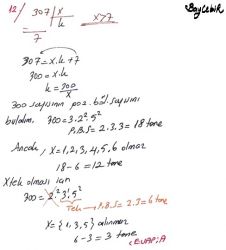 BayCebir
12/ 307 | x
k
7
x>7
307 = x.k + 7
300 = x.k
k = 300/x
300 sayısının poz. böl. sayısını
bulalım. 300 = 3.2².5²
P.B.S = 2.3.3 = 18 tane
Ancak, x = 1,2,3,4,5,6 olmaz
18 - 6 = 12 tane
X tek olması için
300 = 2².3¹.5²
Tek → P.B.S = 2.3 = 6 tane
X = {1,3,5} alınmaz
6 - 3 = 3 tane
CEVAP: A